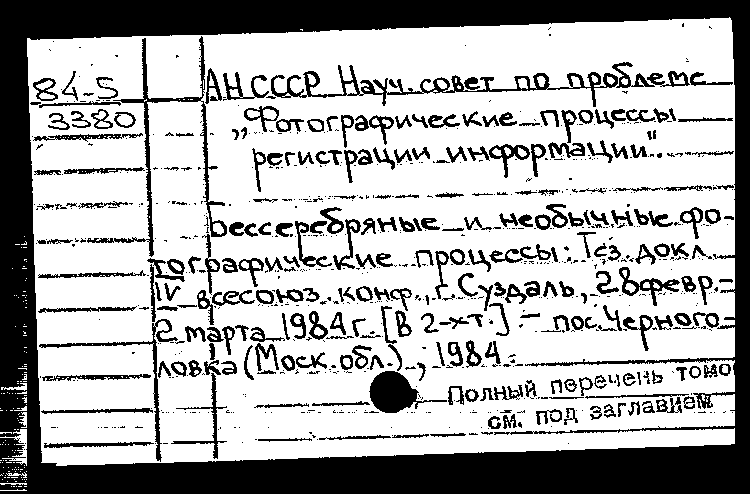 84-5
3380
АН СССР Науч. совет по проблеме
„Фотографические процессы
регистрации информации".
Бессеребряные и необычные фо-
тографические процессы: Тез. докл.
IV всесоюз. конф., г. Суздаль, 28 февр.-
2 марта 1984 г. [В 2-х т.] - пос. Черного-
ловка (Моск. обл.), 1984.
Полный перечень томо
см. под заглавием